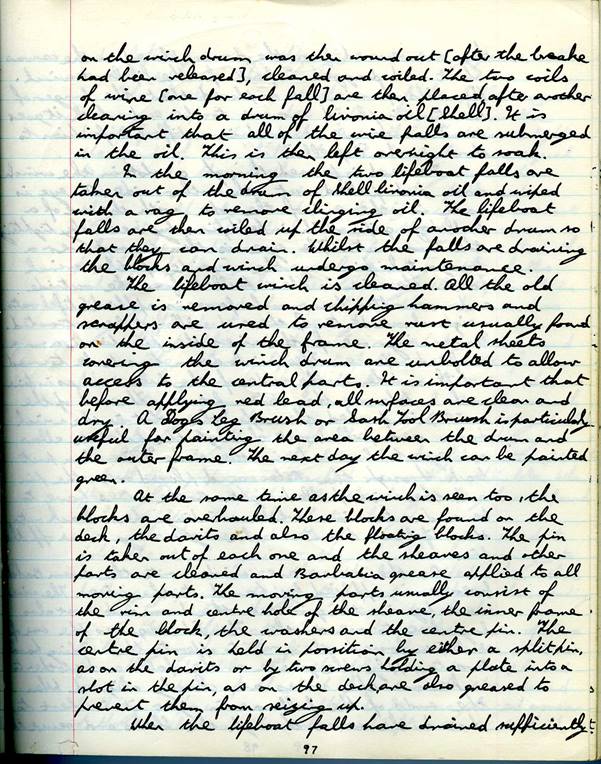 on the winch drum was then wound out [after the breake
had been released], cleaned and coiled. The two coils
of wire [one for each fall] are then placed, after another
cleaning into a drum of livonia oil [Shell]. It is
important that all of the wire falls are submerged
in the oil. This is then left overnight to soak.
In the morning the two lifeboat falls are
taken out of the drum of Shell livonia oil and wiped
with a rag to remove clinging oil. The lifeboat
falls are then coiled up the side of another drum so
that they can drain. Whilst the falls are draining
the blocks and winch undergo maintenance.
The lifeboat winch is cleaned. All the old
grease is removed and chipping hammers and
scrappers are used to remove rust usually found
on the inside of the frame. The metal sheets
covering the winch drum are unbolted to allow
access to the central parts. It is important that
before applying red lead, all surfaces are clean and
dry. A Dogs Leg Brush or Sash Tool Brush is particularly
useful for painting the area between the drum and
the outer frame. The next day the winch can be painted
green.
At the same time as the winch is seen too, the
blocks are overhauled. These blocks are found on the
deck, the davits and also the floating blocks. The pin
is taken out of each one and the sheaves and other
parts are cleaned and Barbatia grease applied to all
moving parts. The moving parts usually consist of
the rim and centre hole of the sheave, the inner frame
of the block, the washers and the centre pin. The
centre pin is held in possition by either a split pin,
as on the davits or by two screws holding a plate into a
slot in the pin, as on the deck are also greased to
prevent them from seizing up.
When the lifeboat falls have drained sufficiently
97